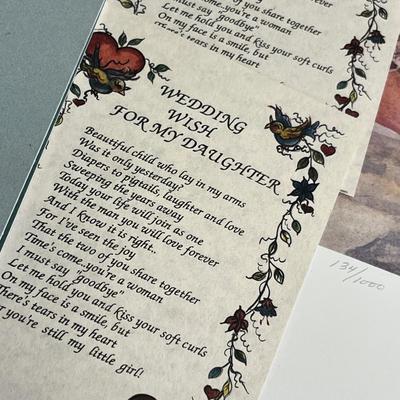 you share together
Time's come, you're a woman
must say "goodbye"
Let me hold you and kiss your soft curls
On my face is a smile, but
tears in my heart
WEDDING
WISH
FOR MY DAUGHTER
Beautiful child who lay in my arms
Was it only yesterday?
Diapers to pigtails, laughter and love
Sweeping the years away
Today your life will join as one
With the man you will love forever
And I know it is right..
For I've seen the joy
That the two of you share together
Time's come, you're a woman
I must say "goodbye"
Let me hold you and kiss your soft curls
On my face is a smile, but
There's tears in my heart
you're still my little girl!
134/1000